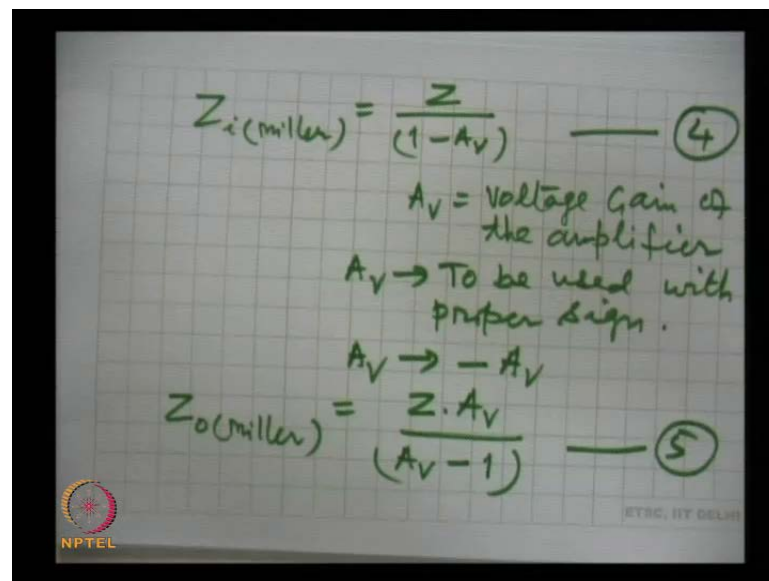 Zi(miller) = Z / (1 - Av) —— 4
Av = Voltage Gain of
the amplifier
Av → To be used with
proper sign.
Av → - Av
Zo(miller) = Z . Av / (Av - 1) —— 5
ETSC, IIT DELHI
NPTEL